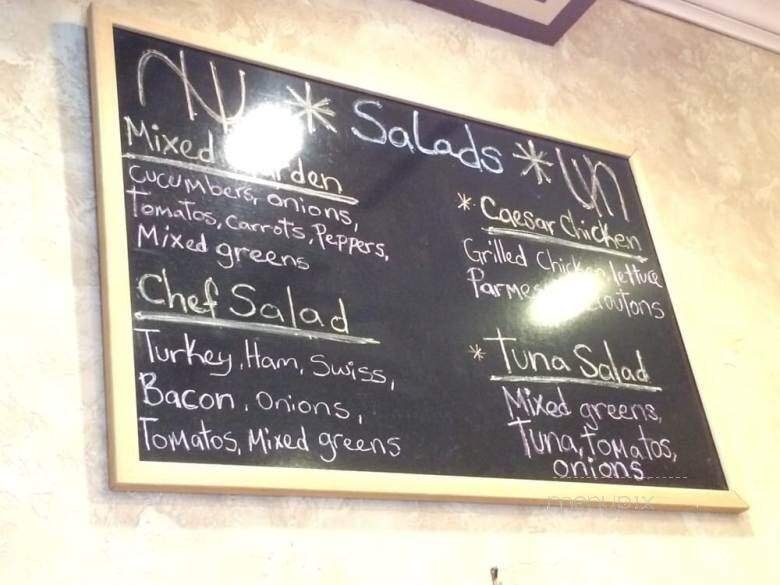 Salads
Mixed
Cucumbers, onions,
Tomatos, carrots, Peppers,
Mixed greens
Chef Salad
Turkey, Ham, Swiss,
Bacon, onions,
Tomatos, Mixed greens
* Caesar Chicken
Grilled Chicken, lettuce
* Tuna Salad
Mixed greens,
Tuna, tomatos,
onions
menupix